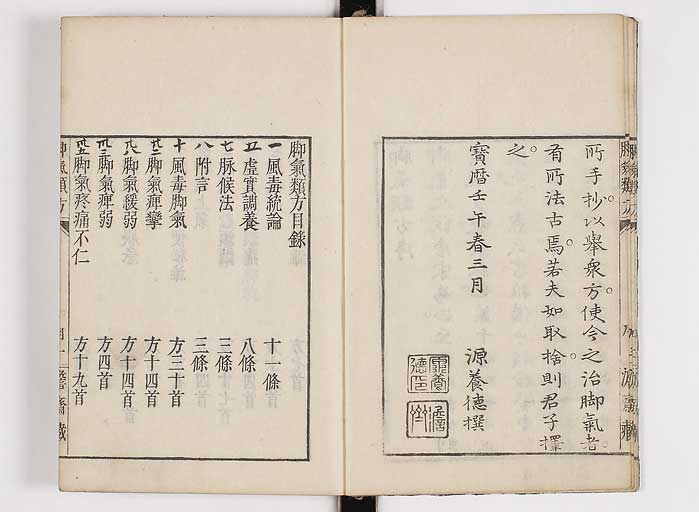 所手抄。以舉衆方。使今之治脚氣者。
有所法古焉。若夫如取捨。則君子擇
之。
寶曆壬午春三月　源養德撰
脚氣類方目錄
一風毒統論　十一條
五虛實調養　八條
七脉候法　三條
八附言　三條
十風毒脚氣　方三十首
脚氣痺攣　方十四首
脚氣緩弱　方十四首
脚氣痺弱　方四首
脚氣疼痛不仁　方十九首
脚氣類方